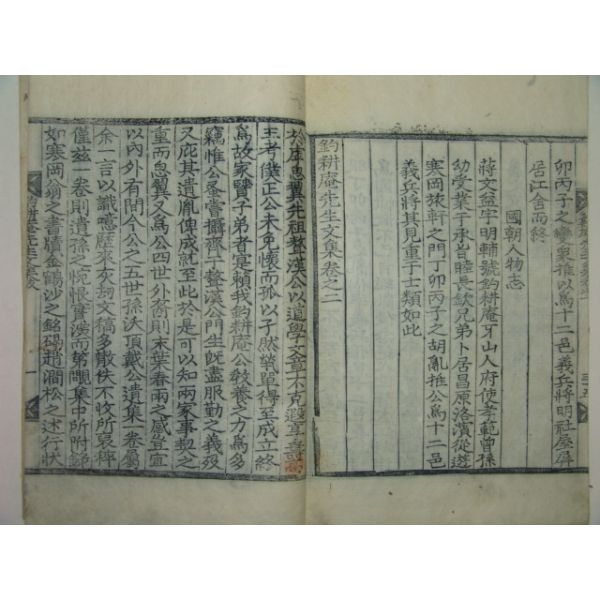 卯丙子之變衆推以爲十二邑義兵將明社屋屏
居江舍而終
國朝人物志
蔣文益字明輔號釣耕庵牙山人府使孝範曾孫
幼受業于承旨睦長欽兄弟卜居昌原洛濱從遊
寒岡旅軒之門丁卯丙子之胡亂推公爲十二邑
義兵將其見重于士類如此
釣耕庵先生文集卷之二
於庫息翼先祖聱漢公以道學文章不克遐享壽
王考僕正公未免懷而孤以孑然煢單得至成立終
爲故家賢子弟者寔賴我釣耕庵公敎養之力爲多
竊惟公蚤嘗攝齊于聱漢公門生旣盡服勤之義歿
又庇其遺胤俾成就至此於是可以知兩家事契之
重而息翼又爲公四世外裔則末葉春雨之感豈宜
以內外有間今公之五世孫沃頂戴公遺集一卷屬
余一言以識噫歷來灰劫文稿多散佚不收所裒稡
僅玆一卷則遺孫之惋恨實深而第覵集中所附錄
如寒岡翁之書牘金鶴沙之銘碣趙澗松之述行狀